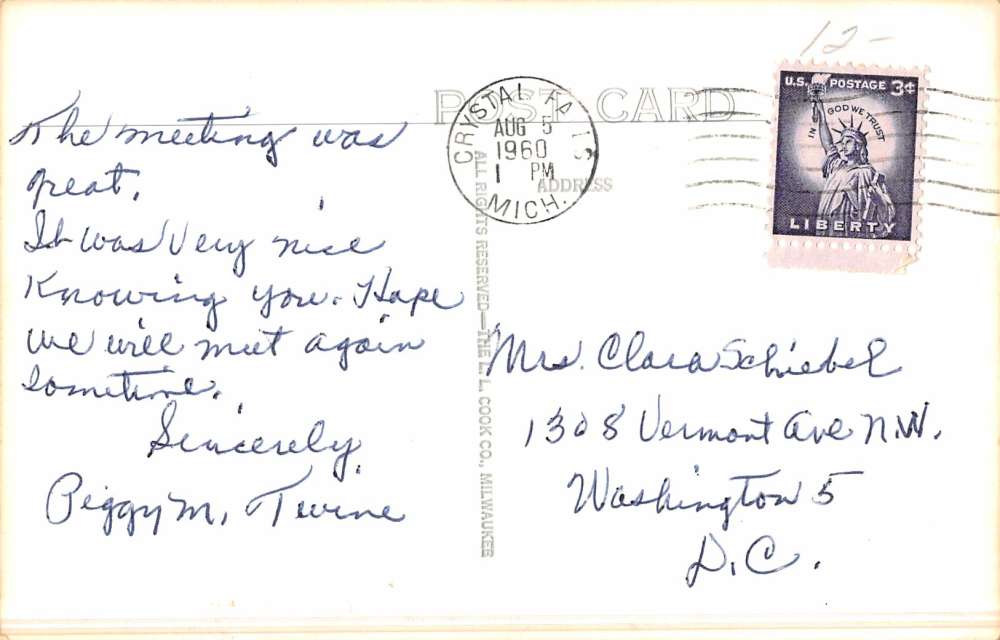 12-
POST CARD
U.S. POSTAGE 3¢
IN GOD WE TRUST
LIBERTY
CRYSTAL FALLS
AUG 5
1960
1 PM
MICH.
ADDRESS
The meeting was
great.
It was very nice
Knowing you. Hope
we will meet again
sometime.
Sincerely,
Peggy M. Twine
ALL RIGHTS RESERVED—THE L. L. COOK CO., MILWAUKEE
Mrs. Clara Schiebel
1308 Vermont Ave N.W.
Washington 5
D.C.